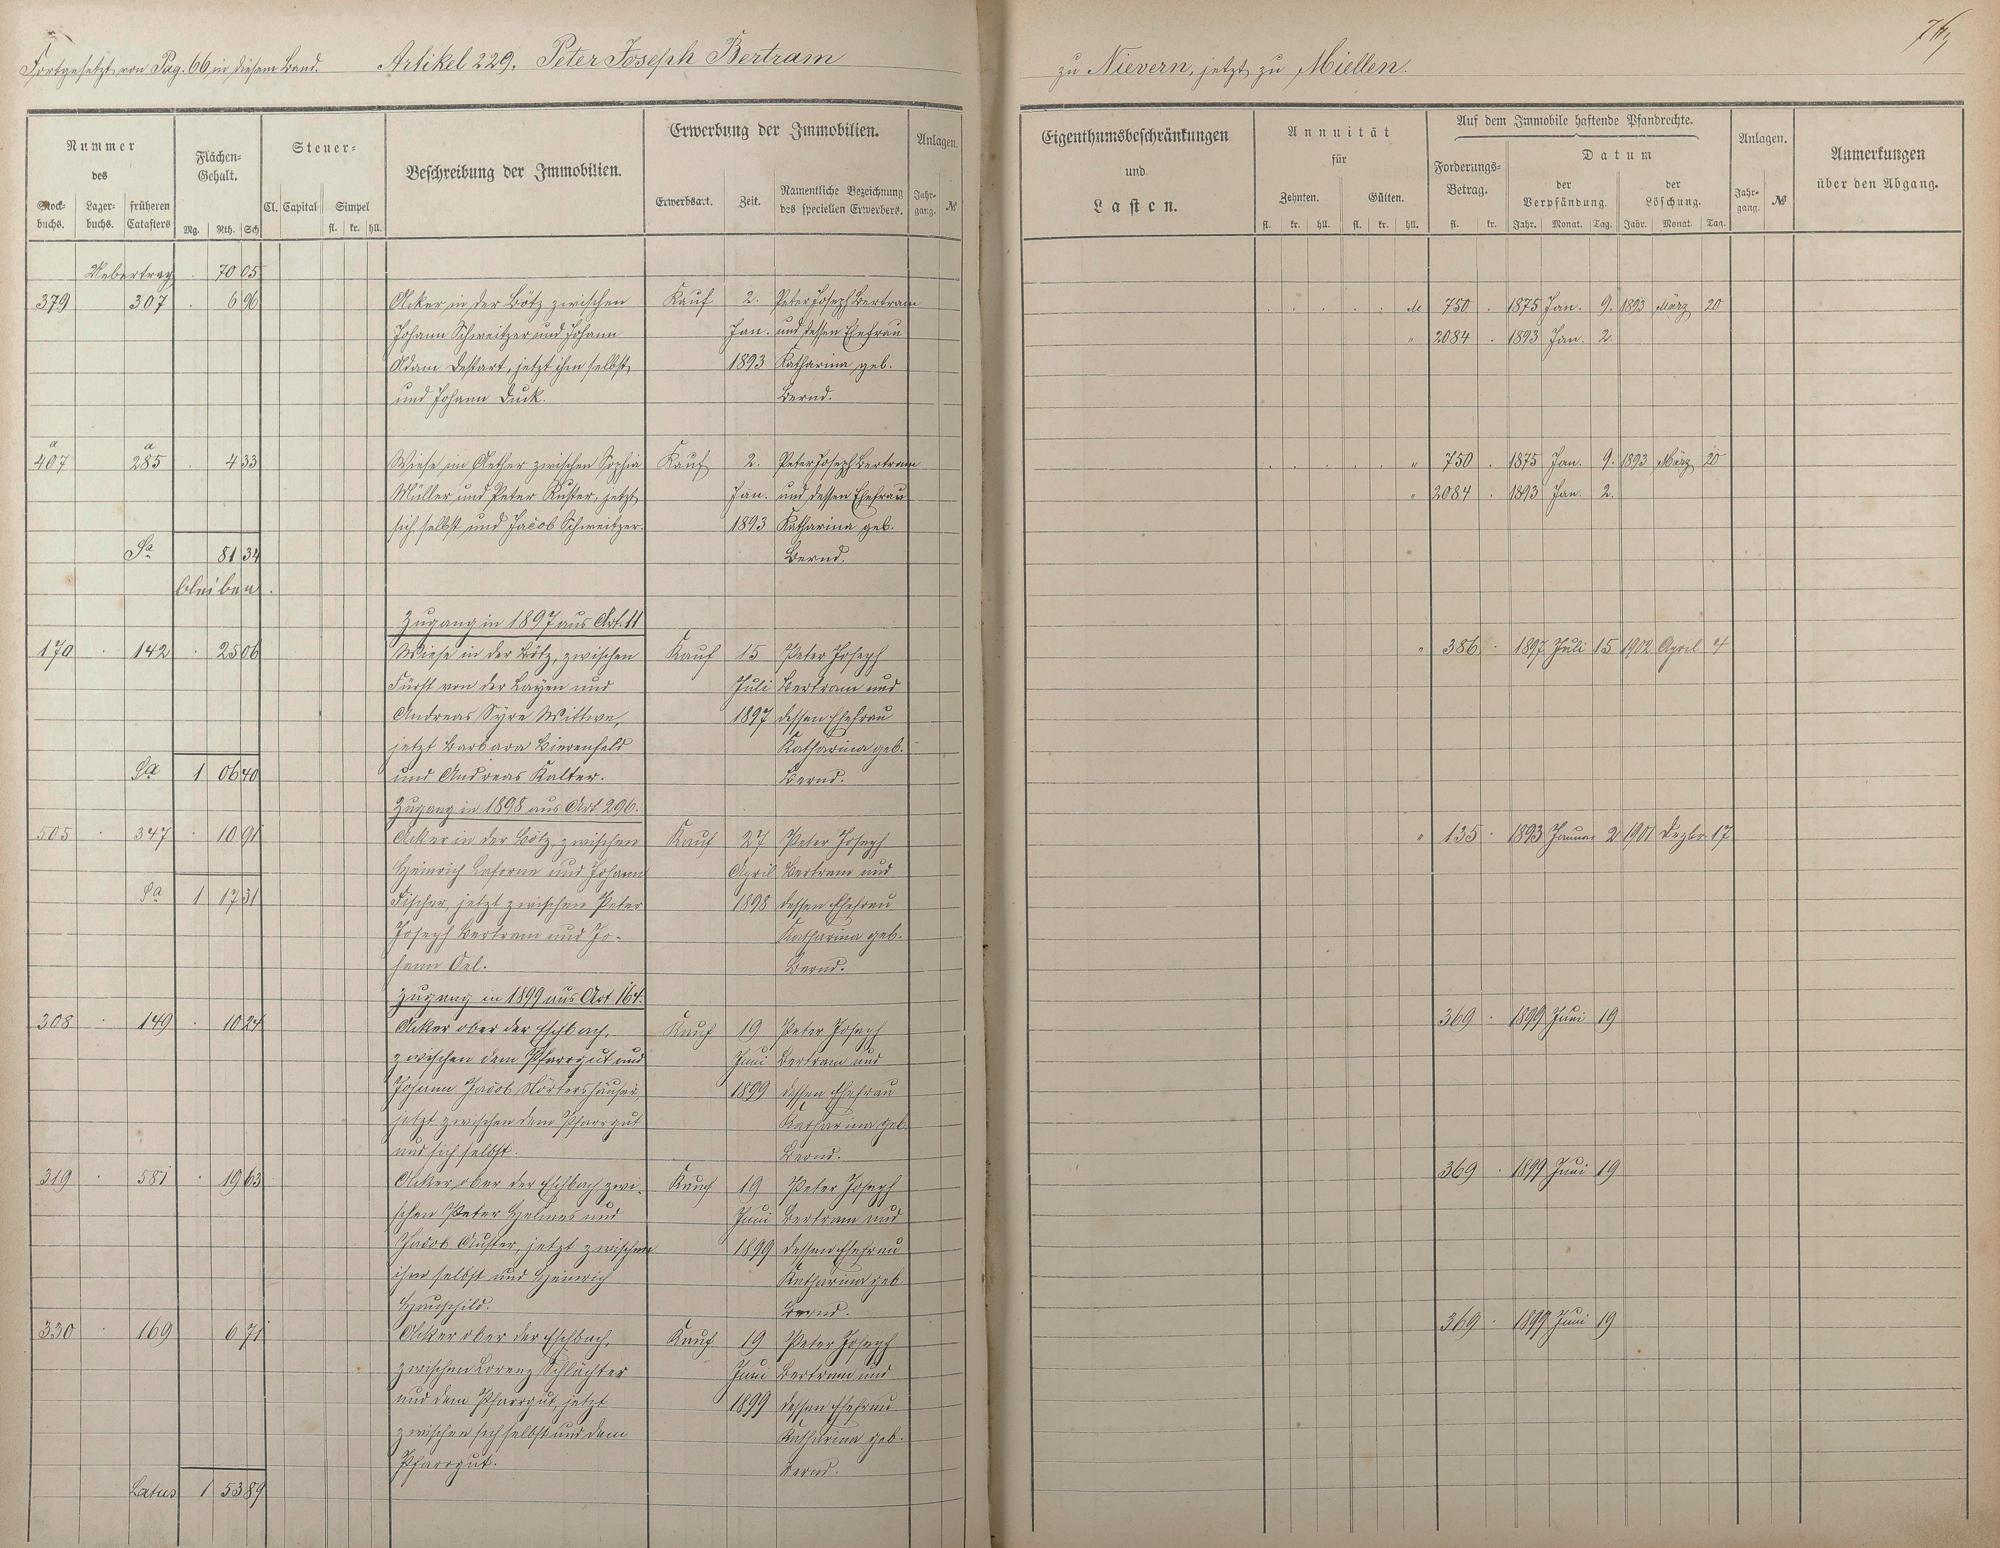 Fortgesetzt von Pag. 66 in diesem Band. Artikel 229. Peter Joseph Bertram zu Nievern, jetzt zu Miellen.
Nummer des
Stock-buchs. Lager-buchs. früheren Catasters
Flächen-Gehalt.
Mg. Rth. Sch
Steuer-
Cl. Capital Simpel
fl. kr. hll.
Beschreibung der Immobilien.
Erwerbung der Immobilien.
Erwerbsart. Zeit. Namentliche Bezeichnung des speciellen Erwerbers.
Anlagen.
Jahr-gang. №
Eigenthumsbeschränkungen
und
Lasten.
Annuität
für
Zehnten. Gülten.
fl. kr. hll. fl. kr. hll.
Auf dem Immobile haftende Pfandrechte.
Forderungs-Betrag.
fl. kr.
Datum
der Verpfändung. der Löschung.
Jahr. Monat. Tag. Jahr. Monat. Tag.
Anlagen.
Jahr-gang. №
Anmerkungen
über den Abgang.
Uebertrag 70 05
379 307 6 96 Acker in der Bötz zwischen Kauf 2. Peter Joseph Bertram M 750 1875 Jan. 9. 1893 März 20
Johann Schweitzer und Johann Jan. und dessen Ehefrau " 2084 1893 Jan. 2.
Adam Destart, jetzt ihm selbst 1893 Katharina geb.
und Johann Duck. Bernd.
407 a 285 a 4 33 Wiese im Aether zwischen Sophia Kauf 2. Peter Joseph Bertram " 750 1875 Jan. 9. 1893 März 20
Müller und Peter Kuster, jetzt Jan. und dessen Ehefrau " 2084 1893 Jan. 2.
sich selbst und Jacob Schweitzer. 1893 Katharina geb.
Sa 81 34 Bernd.
bleiben.
Zugang in 1897 aus Art. 11
170 142 25 06 Wiese in der Bötz, zwischen Kauf 15 Peter Joseph " 386 1897 Juli 15 1902 April 4
Fürst von der Layen und Juli Bertram und
Andreas Syre Wittwe, 1897 dessen Ehefrau
jetzt Barbara Bierenfeld Katharina geb.
Sa 1 06 40 und Andreas Kalter. Bernd.
Zugang in 1898 aus Art 296.
505 347 10 91 Acker in der Bötz, zwischen Kauf 27 Peter Joseph " 135 1893 Januar 2 1901 Dezbr 17
Heinrich Laforne und Johann April Bertram und
Sa 1 17 31 Fischer, jetzt zwischen Peter 1898 dessen Ehefrau
Joseph Bertram und Jo- Katharina geb.
hann Oel. Bernd.
Zugang in 1899 aus Art 164.
308 149 10 24 Acker ober der Eschbach, Kauf 19 Peter Joseph 369 1899 Juni 19
zwischen dem Pfarrgut und Juni Bertram und
Johann Jacob Nörtershäuser, 1899 dessen Ehefrau
jetzt zwischen dem Pfarrgut Katharina geb.
und sich selbst. Bernd.
319 581 19 63 Acker ober der Eschbach zwi- Kauf 19 Peter Joseph 369 1899 Juni 19
schen Peter Helmes und Juni Bertram und
Jacob Auster, jetzt zwischen 1899 dessen Ehefrau
ihm selbst und Heinrich Katharina geb.
Hauschild. Bernd.
330 169 6 71 Acker ober der Eschbach, Kauf 19 Peter Joseph 369 1899 Juni 19
zwischen Lorenz Schlächter Juni Bertram und
und dem Pfarrgut, jetzt 1899 dessen Ehefrau
zwischen sich selbst und dem Katharina geb.
Pfarrgut. Bernd.
Latus 1 53 89